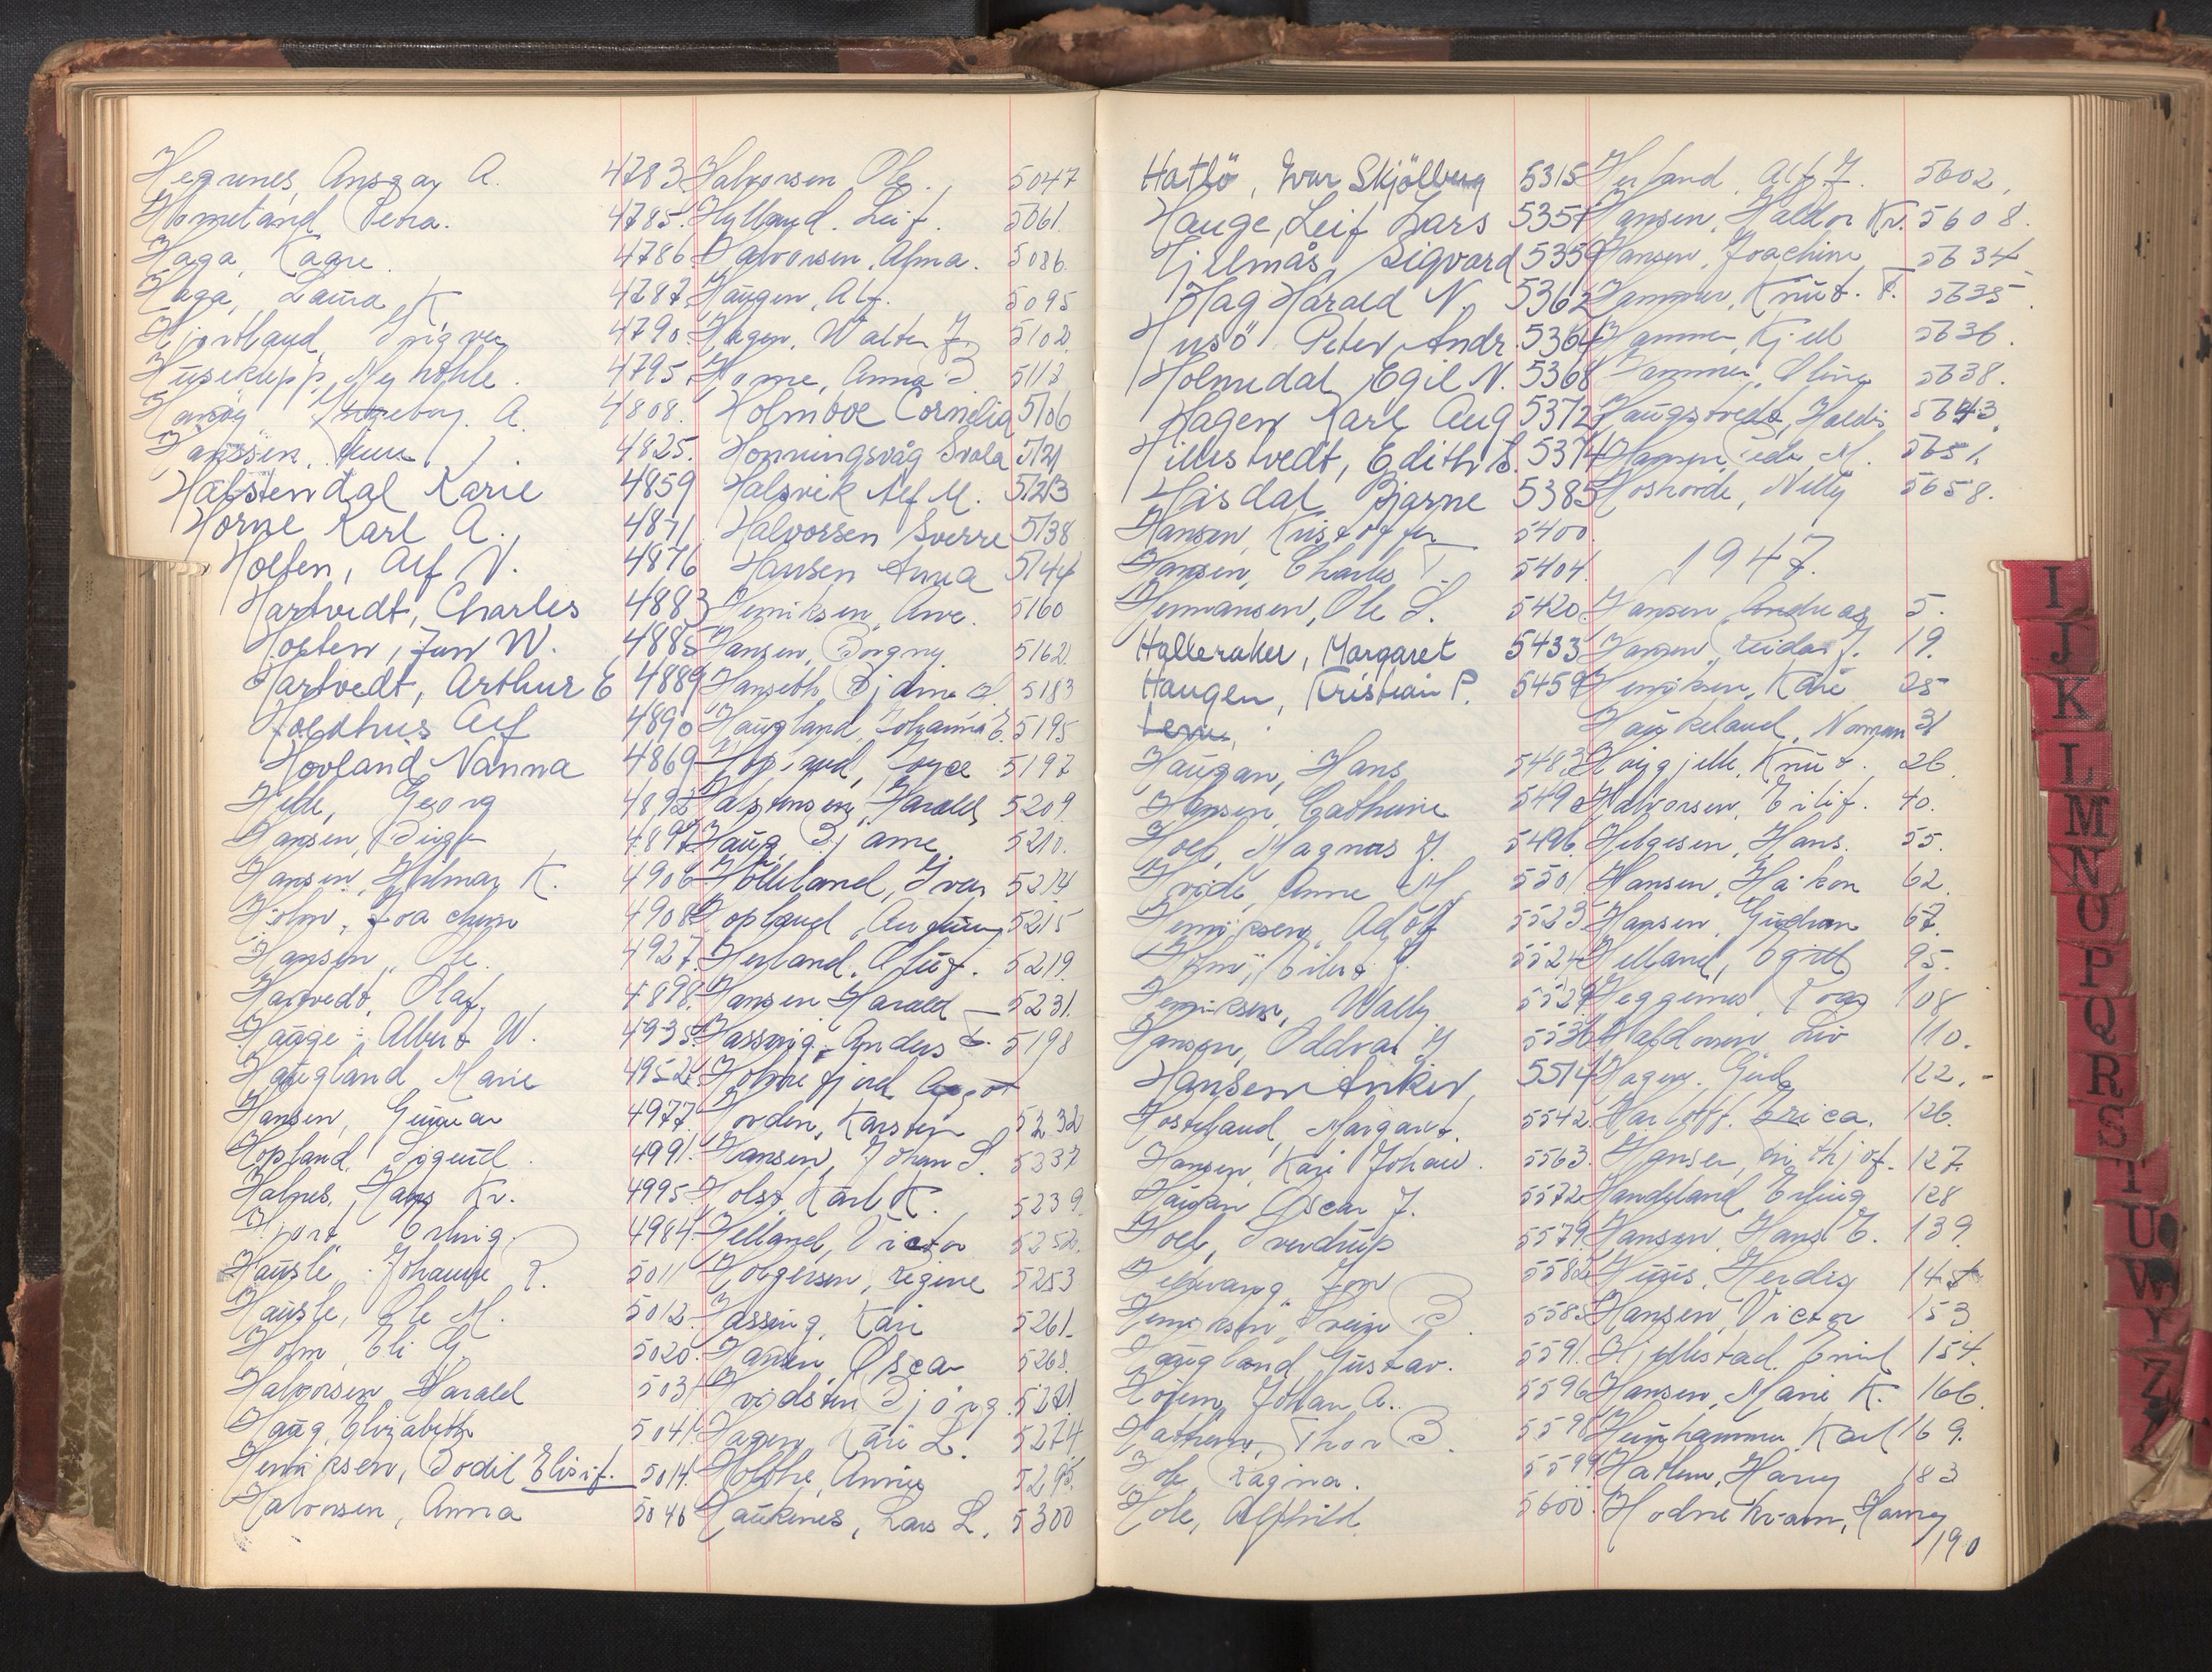 Hegrenes, Ansgar A. 4783
Hometand Petra. 4785.
Haga, Kaare. 4786
Haga, Laura K 4787.
Hjortland, Trygve 4790
Huseklepp, 4795.
Ingeborg. A. 4808.
Hanssen, 4825.
Håbstendal Karie 4859
Horne Karl A. 4871
Holten, Alf N. 4876
Hartvedt, Charles 4883
Holten, Jun W. 4885
Hartvedt, Arthur E 4889
Holdhus Alf 4890
Hovland Nanna 4869
Hille, Georg 4892
Hansen, Birger 4897
Hansen, Hilmar K. 4906
Holm, Joachim 4908
Hansen, Ole. 4927.
Hartvedt, Olaf, 4898.
Hauge, Albert W. 4935.
Haugland Marie 4952.
Hansen, Gunnar 4977.
Hopland, Sigurd. 4991.
Halnes, Hans Kr. 4995.
Hjort Erling. 4984.
Hausle Johanne R. 5011
Hausle, Ole M. 5012.
Holm, Eli G. 5020.
Halvorsen, Harald 5031
Haug, Elizabeth 5041.
Henriksen, Bodil Elisif. 5014.
Halvorsen, Anna 5046
Halvorsen Ole. 5047
Hylland. Leif. 5061.
Halvorsen, Alma. 5086.
Haugen, Alf. 5095
Hagen, Walter J. 5102
Horne, Anna B 5113
Holmboe Cornelia 5106
Honningsvåg Svala 5121
Halsvik Alf M. 5123
Halvorsen Sverre 5138
Hansen Anna 5144
Henriksen, Arve. 5160
Hansen, Borgny. 5162.
Hanseth, Bjarne A. 5183
Haugland, Johanna E. 5195
Hopland, Aage 5197
Halstensen, Harald, 5209.
Haug, Bjarne 5210.
Hölleland, Ivar 5214
Hopland, Audun, 5215
Herland, Oluf. 5219.
Hansen Harald 5231.
Hassing, Anders 5198
Holmefjord Aagot
Horden, Karsten 5232
Hansen, Johan S. 5237
Holst, Karl K. 5239.
Helland, Victor 5252.
Holgersen, Regine 5253
Hassing, Kari 5261.
Hansen Oscar 5268.
Hvidsten Bjørg. 5271.
Hagen Kari L. 5274.
Holthe, Annie 5295.
Haukenes, Lars L. 5300
Hatlö, Ivar Skjölberg 5315
Hauge, Leif Lars 5357
Hjellmås, Sigvard 5359
Hag Harald N. 5362
Husö Peter Andr. 5364
Holmedal Egil N. 5368
Hagen Karl Aug 5372
Hillestvedt, Edith S. 5374
Håsdal Bjarne 5385
Hansen, Kristoffer 5400
Hansen, Charles T. 5404.
Hermansen, Ole S. 5420.
Halleraker, Margaret 5433
Haugen, Kristian P. 5459
Haugan, Hans 5483
Hansen, Cathrine 549
Hoel, Magnus J. 5496.
Hvide, Anne M, 5501
Henriksen, Adolf 5523
Holm, Eilert J. 5524
Henriksen, Wally 5529
Hansen, Oddvar H 5536
Hansen Anker, 5514
Hosteland, Margaret. 5542.
Hansen, Kari Johan. 5563.
Haugan Oscar J. 5572
Hoel, Sverdrup 5579.
Jon 5582
Henriksen, Svein B. 5585
Haugland Gustav. 5591.
Höjem, Johan A. 5596
Hatlem, Thor B. 5598
Hole Ragna. 5599
Hole, Alfhild. 5600.
Herland, Alf J. 5602.
Hansen, Haldor Kr. 5608.
Hansen, Joachim 5634
Hammer, Knut. F. 5635.
Hammer, Kjell 5636.
Hammer, 5638.
Haugstvedt, Haldis 5643.
Hansen, M. 5651.
Hoshovde, Nelly 5658.
1947.
Hansen Andreas 5.
Hansen, Reidar J. 19.
Henriksen, Kåre 25
Haukeland, Norman 31
Höigjelle, Knut. 26.
Halvorsen, Eilif. 40.
Helgesen, Hans. 55.
Hansen, Håkon 62.
Hansen, Gudrun 67.
Helland, Egill 95.
Heggenes, Roar 108
Haldorsen Liv 110.
Hagen, Gud 122.-
Harloff. Erica. 126.
Hansen, Frithjof. 127.
Handeland, Erling 128
Hansen, Hans E. 139.
Huus, Herdis 145
Hansen, Victor 153
Hjellestad, Emil 154.
Hansen, Marie K. 166.
Heimhammer Karl 169.
Hatlem, Harry 183
Hodnekvam, Harry
190
I
J
K
L
M
N
O
P
Q
R
S
T
U
W
Y
Z